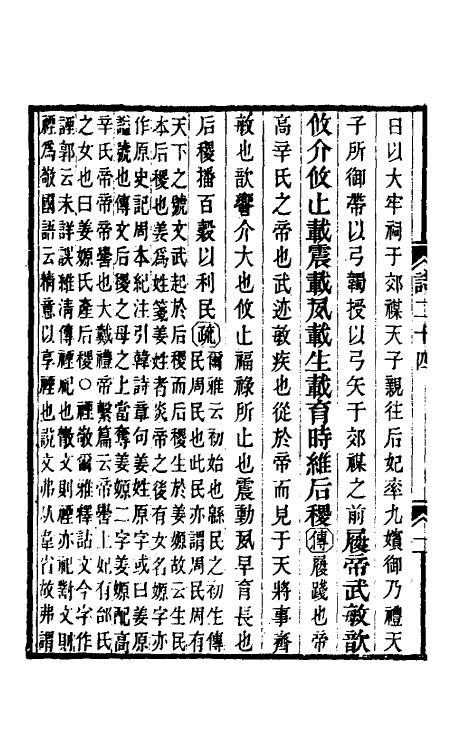 日以大牢祠于郊禖天子親往后妃率九嬪御乃禮天
子所御帶以弓韣授以弓矢于郊禖之前履帝武敏歆
攸介攸止載震載夙載生載育時維后稷傳履踐也帝
高辛氏之帝也武迹敏疾也從於帝而見于天將事齊
敏也歆饗介大也攸止福祿所止也震動夙早育長也
后稷播百穀以利民疏爾雅云初始也緜民之初生傳
民周民也此民亦謂周民周有
天下之號文武起於后稷后稷生於姜嫄故云生民
本后稷也姜爲姜姓者炎帝之後有女名嫄字亦
作原史記周本紀注引韓詩章句姜姓原字或曰姜原
謚號也傳文后稷之母之上當奪姜嫄二字姜嫄配高
辛氏帝帝嚳也大戴禮帝繫篇云帝嚳上妃有邰氏
之女也曰姜嫄氏產后稷○禋敬爾雅釋詁文今字作
諲郭云未詳誤維清傳禋祀也散文則禋亦祀對文則
禋爲敬國語云精意以享禋也說文弗从韋省故弗謂
詩二十四
二